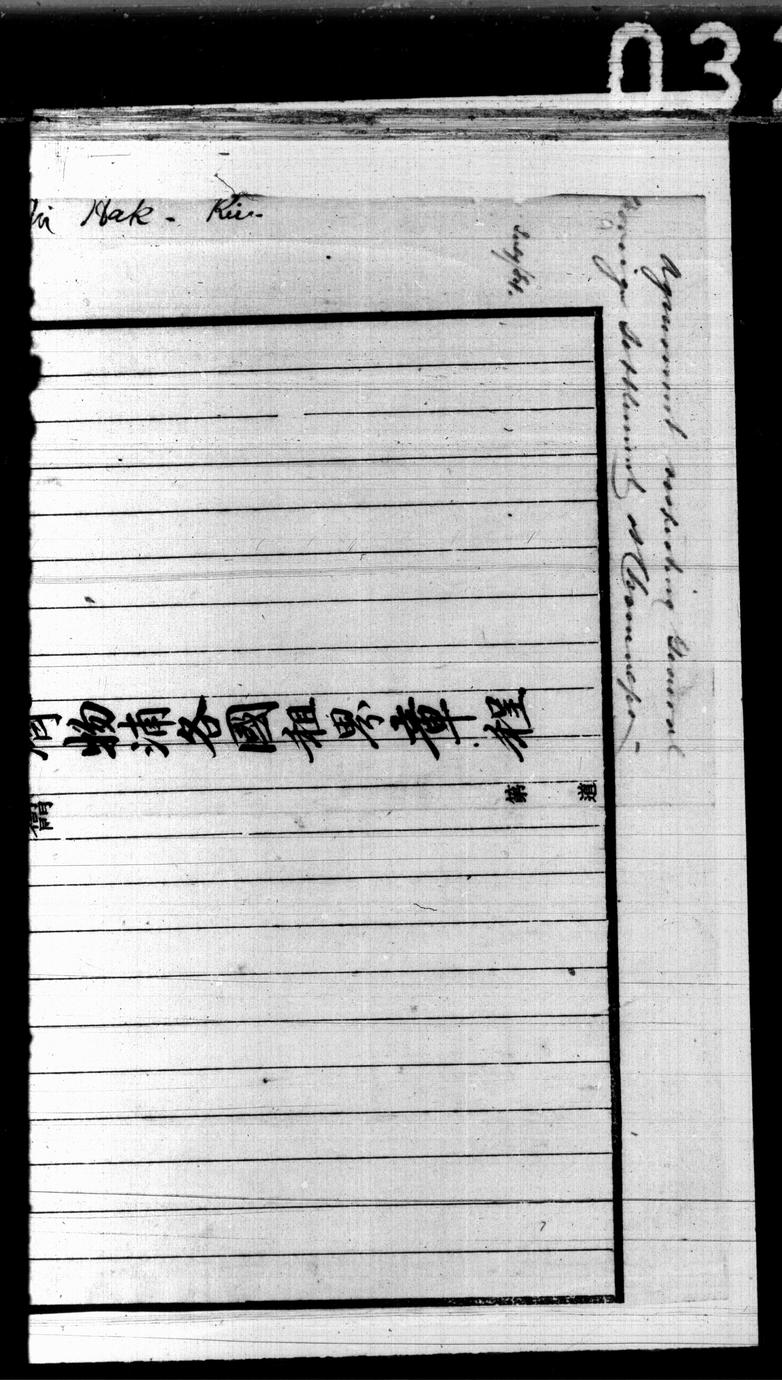 03
Hak - Kiu
Agreement respecting General
Foreign Settlement at Chemulpo
物浦各國租界章程
第
道